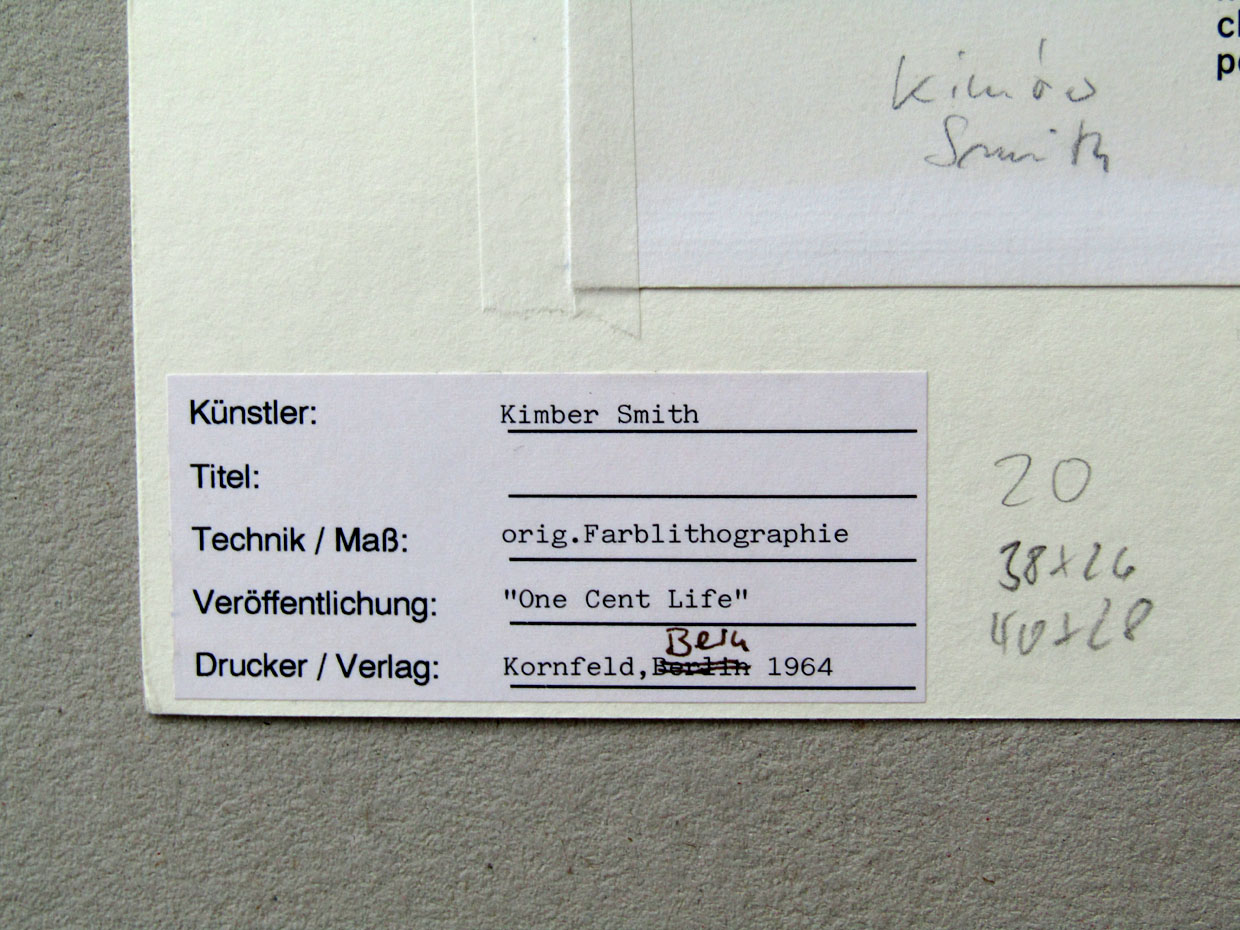 Kimber
Smith
Künstler: Kimber Smith
Titel:
Technik / Maß: orig.Farblithographie
Veröffentlichung: "One Cent Life"
Bern
Drucker / Verlag: Kornfeld, Berlin 1964
20
38x26
40x28